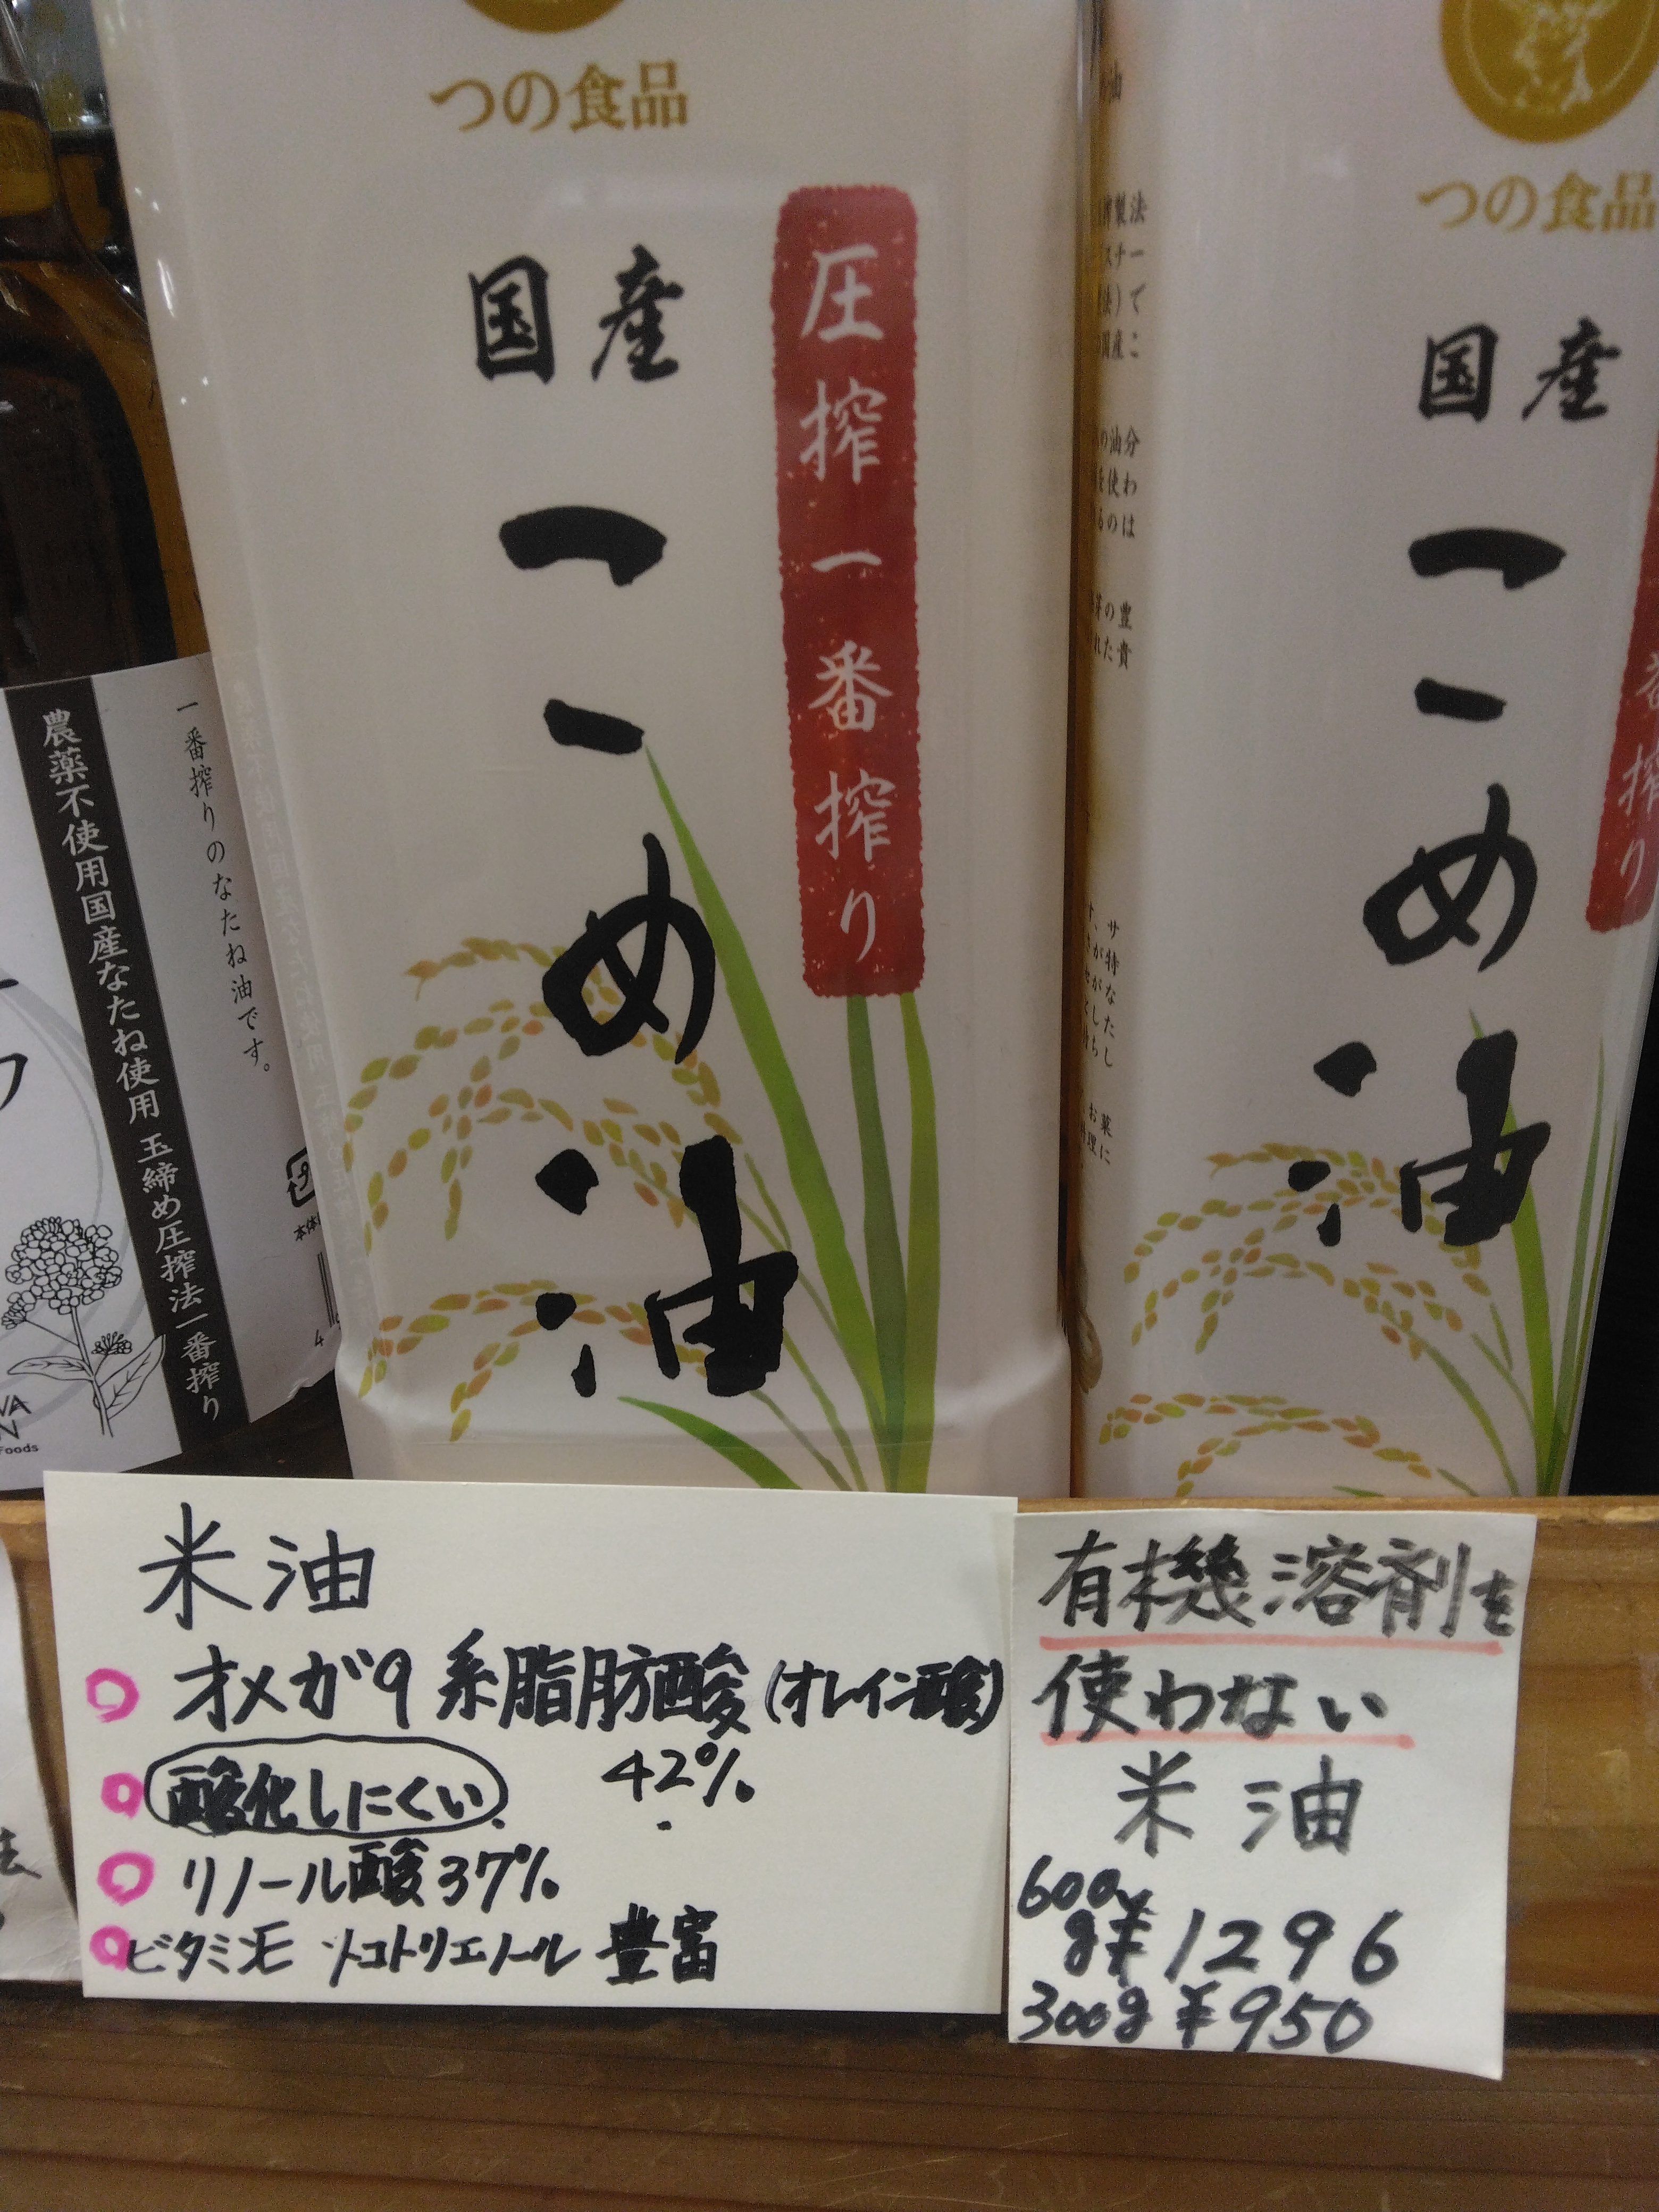 つの食品
国産
こめ油
圧搾一番搾り
つの食品
国産
こめ油
番搾り
一番搾りのなたね油です。
農薬不使用国産なたね使用 玉締め圧搾法一番搾り
Foods
米油
オメガ9系脂肪酸(オレイン酸)
42%
酸化しにくい
リノール酸37%
ビタミンE トコトリエノール 豊富
有機溶剤を
使わない
米油
600g ¥1296
300g ¥950